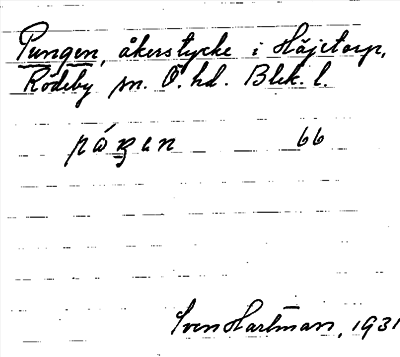 Pungen, åkerstycke i Häjetorp,
Rödeby sn. Ö. hd. Blek. l.
66
Sven Hartman, 1931